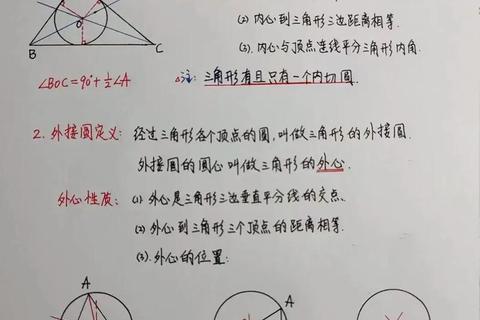 (2) 内心到三角形三边距离相等.
O
B
C
(3). 内心与顶点连线平分三角形内角.
∠BOC=90°+½∠A
△注: 三角形有且只有一个内切圆.
2. 外接圆定义: 经过三角形各个顶点的圆,叫做三角形的外接圆.
外接圆的圆心叫做三角形的外心.
外心性质: (1) 外心是三角形三边垂直平分线的交点.
(2) 外心到三角形三个顶点的距离相等.
(3). 外心的位置:
A
A